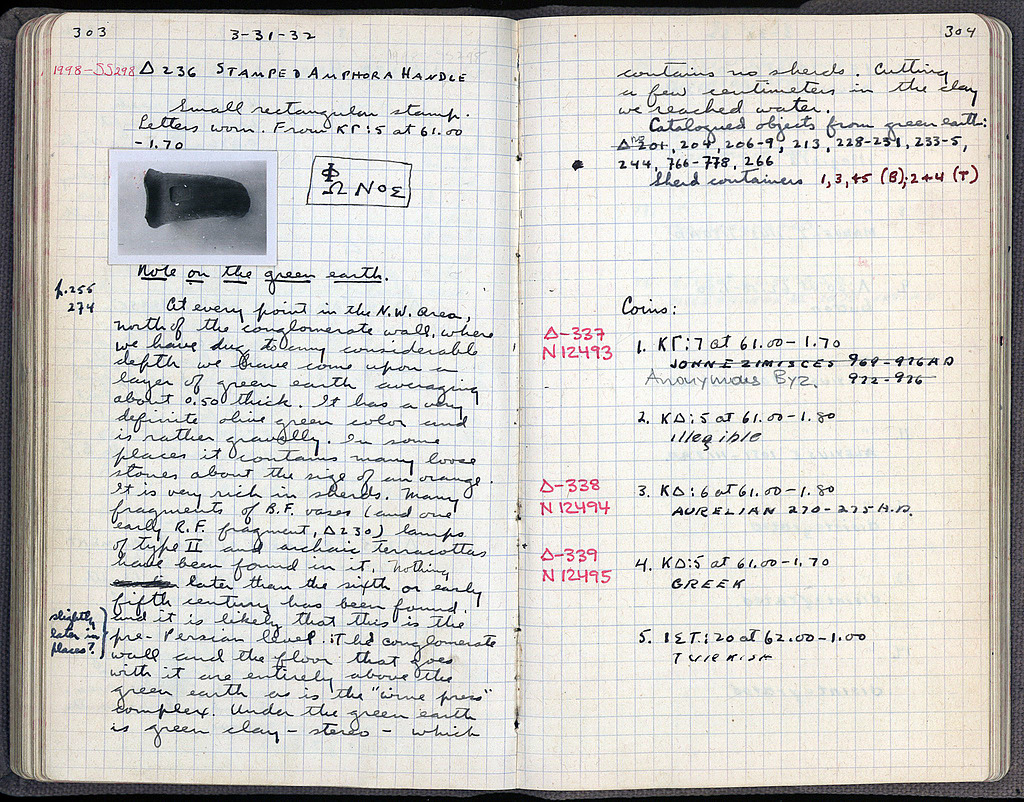 303
3-31-32
1998-SS298 Δ 236 STAMPED AMPHORA HANDLE
Small rectangular stamp.
Letters worn. From ΚΓ:5 at 61.00
-1.70
Φ
Ω ΝΟΣ
Note on the green earth.
p.255
274
At every point in the N.W. area,
north of the conglomerate wall, where
we have dug to any considerable
depth we have come upon a
layer of green earth averaging
about 0.50 thick. It has a very
definite olive green color and
is rather gravelly. In some
places it contains many loose
stones about the size of an orange.
It is very rich in sherds. Many
fragments of B.F. vases (and one
early R.F. fragment, Δ230) lamps
of type II and archaic terracottas
have been found in it. Nothing
later than the sixth or early
fifth century has been found.
and it is likely that this is the
slightly
later in
places?
pre-Persian level. The conglomerate
wall and the floor that goes
with it are entirely above the
green earth as is the "wine press"
complex. Under the green earth
is green clay - stereo - which
304
contains no sherds. Cutting
a few centimeters in the clay
we reached water.
Catalogued objects from green earth:
Δ nos 201, 204, 206-9, 213, 228-231, 233-5,
244, 766-778, 266
Sherd containers 1,3,+5 (B); 2+4 (T)
Coins:
Δ-337
N 12493
1. ΚΓ:7 at 61.00-1.70
JOHN I ZIMISCES 969-976 AD
Anonymous Byz. 972-976
2. ΚΔ:5 at 61.00-1.80
illegible
Δ-338
N 12494
3. ΚΔ:6 at 61.00-1.80
AURELIAN 270-275 A.D.
Δ-339
N 12495
4. ΚΔ:5 at 61.00-1.70
GREEK
5. ΙΣΤ:20 at 62.00-1.00
TURKISH